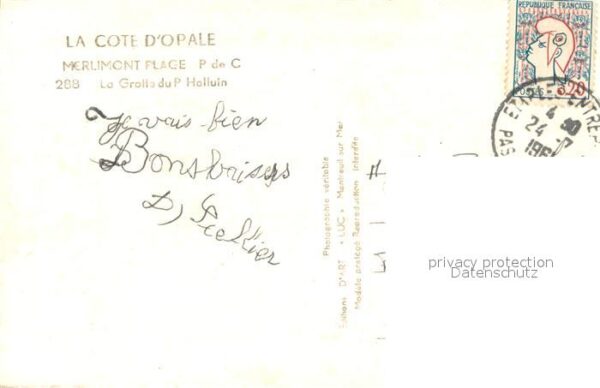 LA COTE D'OPALE
MERLIMONT PLAGE P de C
288 La Grotte du P Halluin
Je vais bien
Bons baisers
D,
Photographie véritable
Editions D'ART « LUC » Montreuil sur Mer
Modèle protégé Reproduction interdite
REPUBLIQUE FRANÇAISE
POSTES 0,20
24
196
PAS
privacy protection
Datenschutz